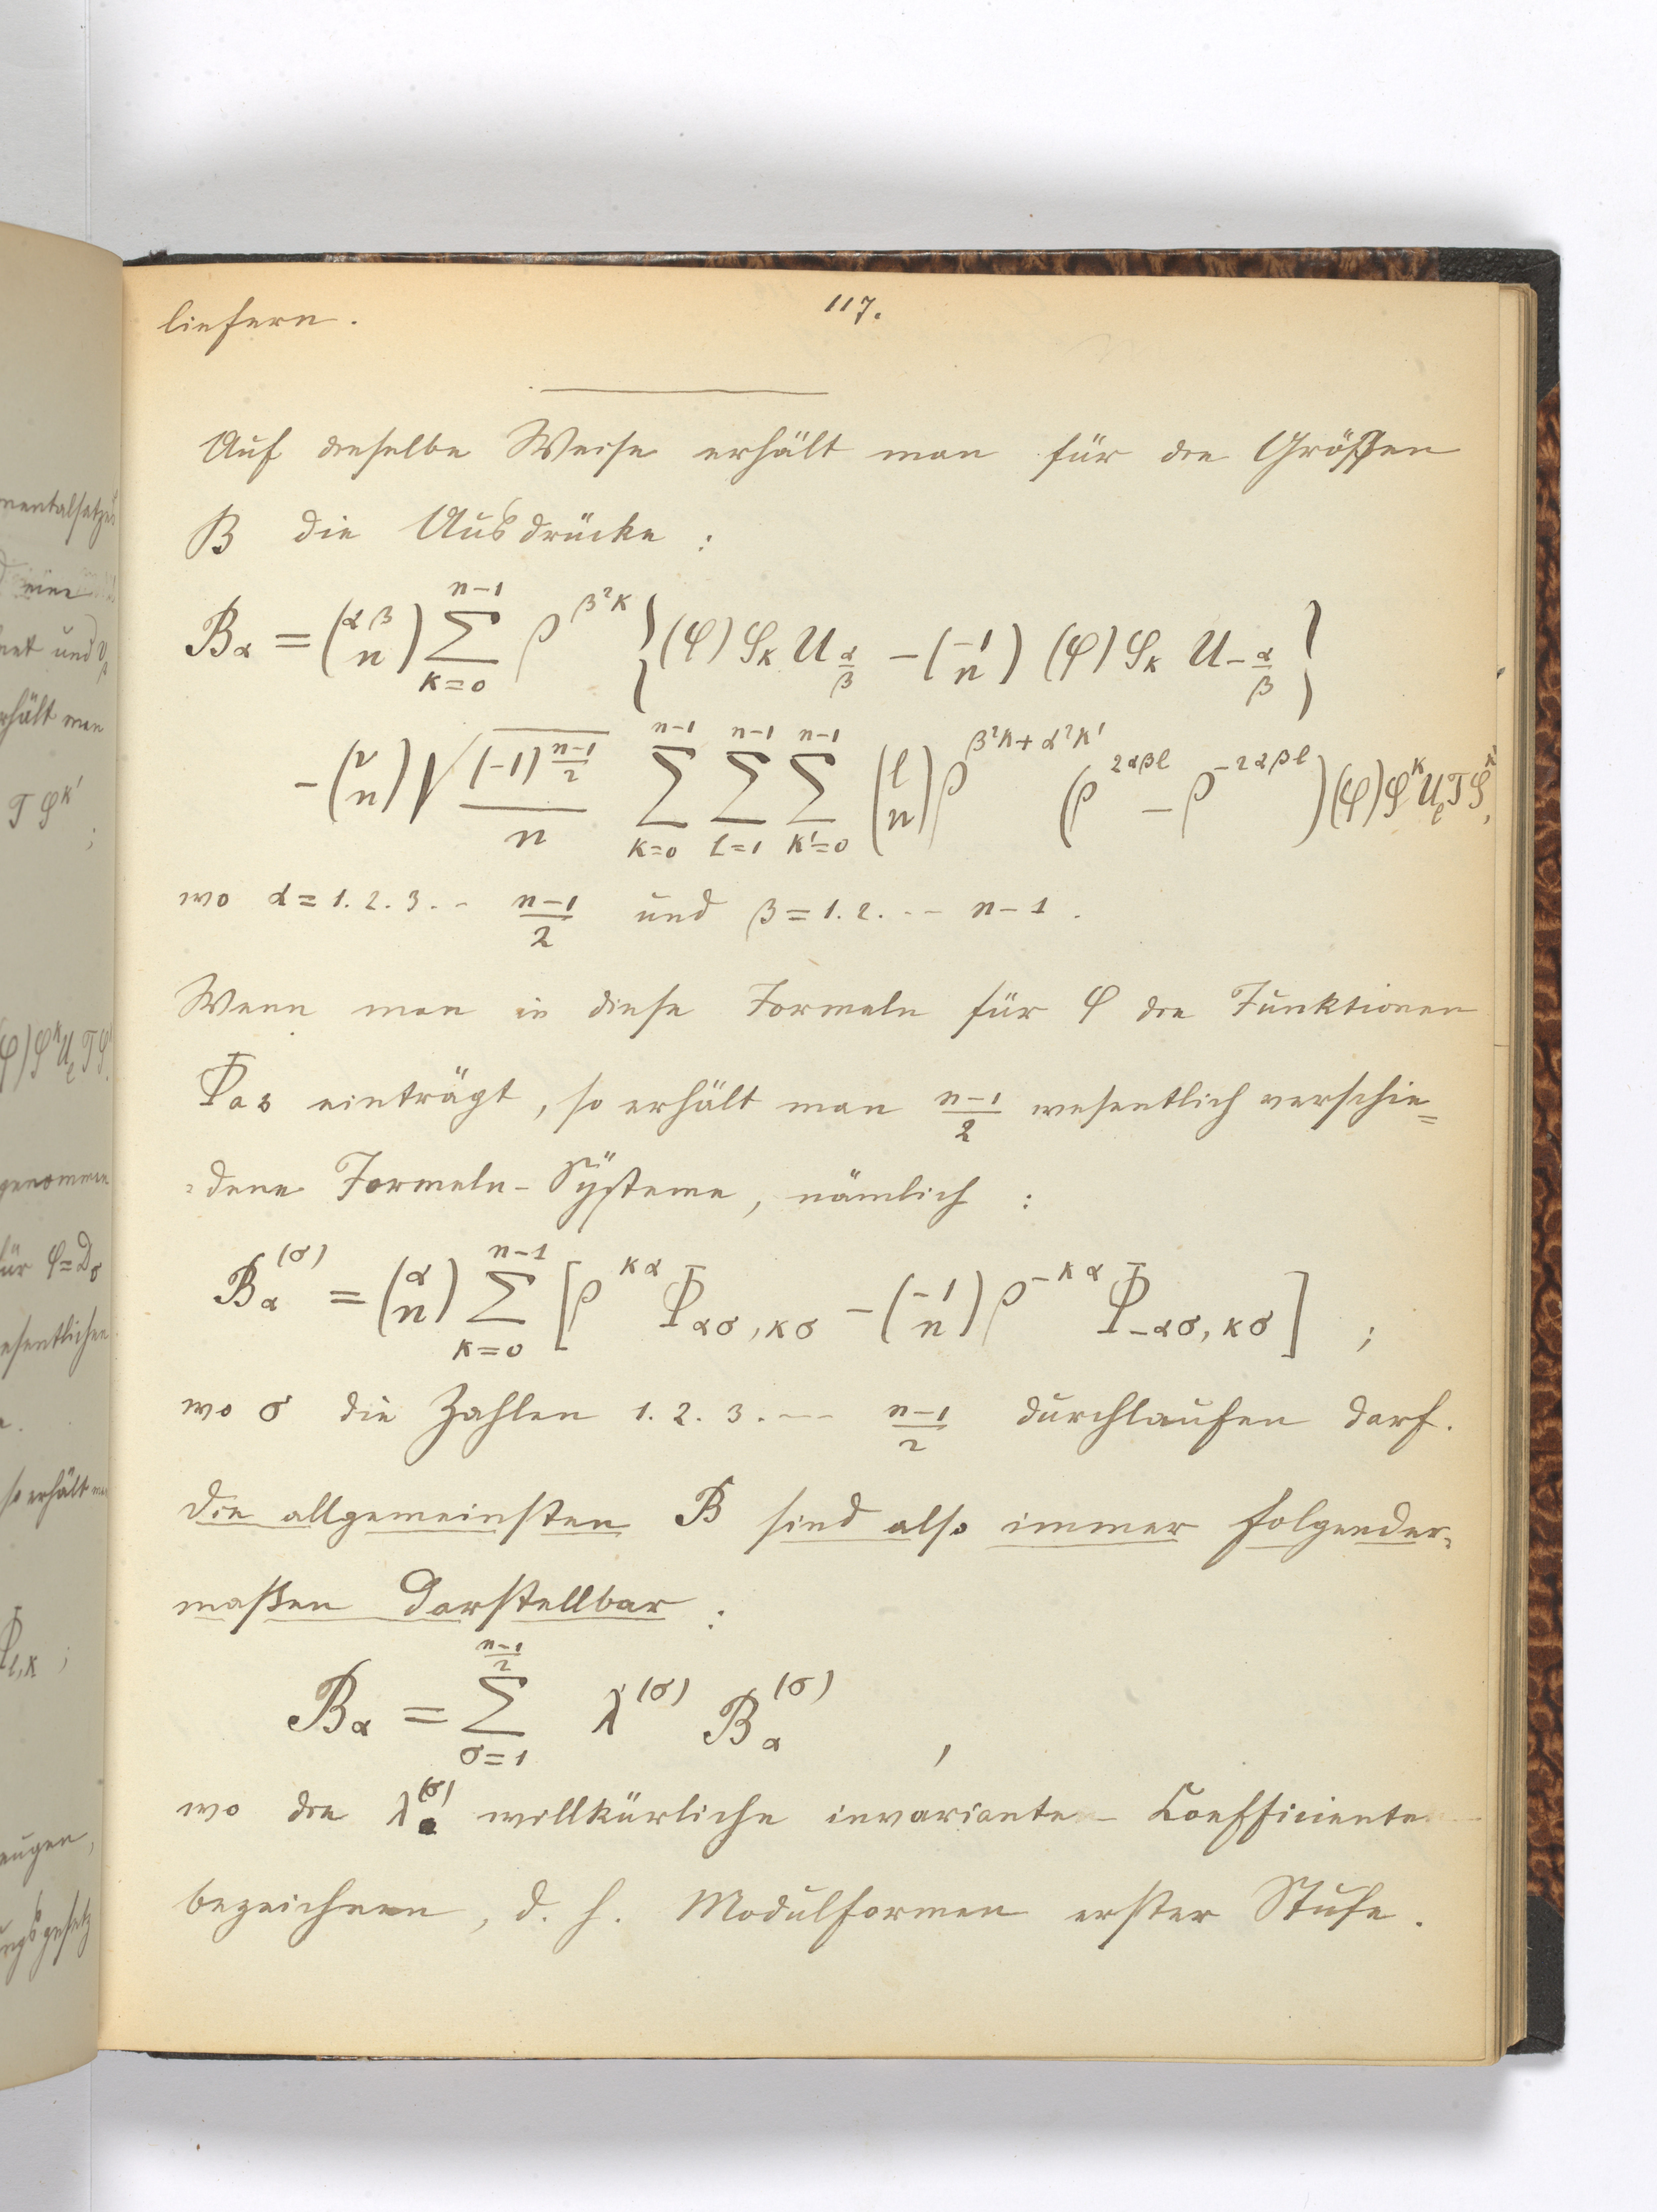 117.
liefern.
Auf dieselbe Weise erhält man für die Größen
B die Ausdrücke:
B_α = (αβ/n) ∑_{κ=0}^{n-1} ρ^{β²κ} {(φ) S_κ U_{α/β} - (-1/n) (φ) S_κ U_{-α/β}}
- (ν/n) √((-1)^{(n-1)/2}) / n ∑_{κ=0}^{n-1} ∑_{l=1}^{n-1} ∑_{κ'=0}^{n-1} (l/n) ρ^{β²κ+α²κ'} (ρ^{2αβl} - ρ^{-2αβl}) (φ) S^κ U_l T S^{κ'},
wo α = 1. 2. 3. -- (n-1)/2 und β = 1. 2. --- n-1.
Wenn man in diese Formeln für φ die Funktionen
einträgt, so erhält man (n-1)/2 wesentlich verschie=
=dene Formeln-Systeme, nämlich:
B_α^{(σ)} = (α/n) ∑_{κ=0}^{n-1} [ρ^{κα} Φ_{ασ,κσ} - (-1/n) ρ^{-κα} Φ_{-ασ,κσ}];
wo σ die Zahlen 1. 2. 3. --- (n-1)/2 durchlaufen darf.
Die allgemeinsten B sind also immer folgender=
maßen darstellbar:
B_α = ∑_{σ=1}^{(n-1)/2} λ^{(σ)} B_α^{(σ)},
wo die λ^{(σ)} willkürliche invariante Coefficiente
bezeichnen, d. h. Modulformen erster Stufe.